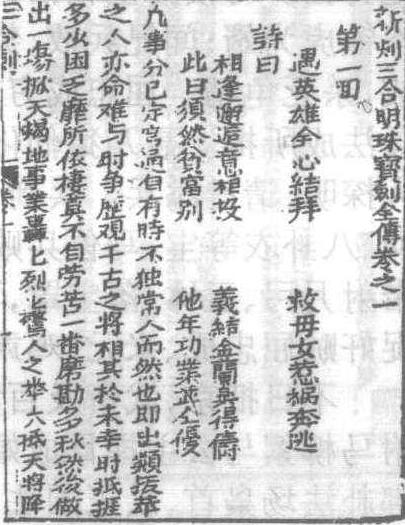 新刻三合明珠寶劍全傳卷之一
第一回
遇英雄全心結拜　救毋女惹禍奔逃
詩曰
相逢邂逅意相投　義結金蘭得儔
此日須然貧富別　他年功業並全優
凡事分已定窮通自有時不獨常人而然也即出類拔萃
之人亦命难与时争歷观千古之將相其於未幸时抵捱
多少困乏靡所依棲真不自劳苦一番磨勘多秋然後做
出一塲掀天蝎地事業轟匕烈匕驚人之举六抵天將降
三合劍　卷一